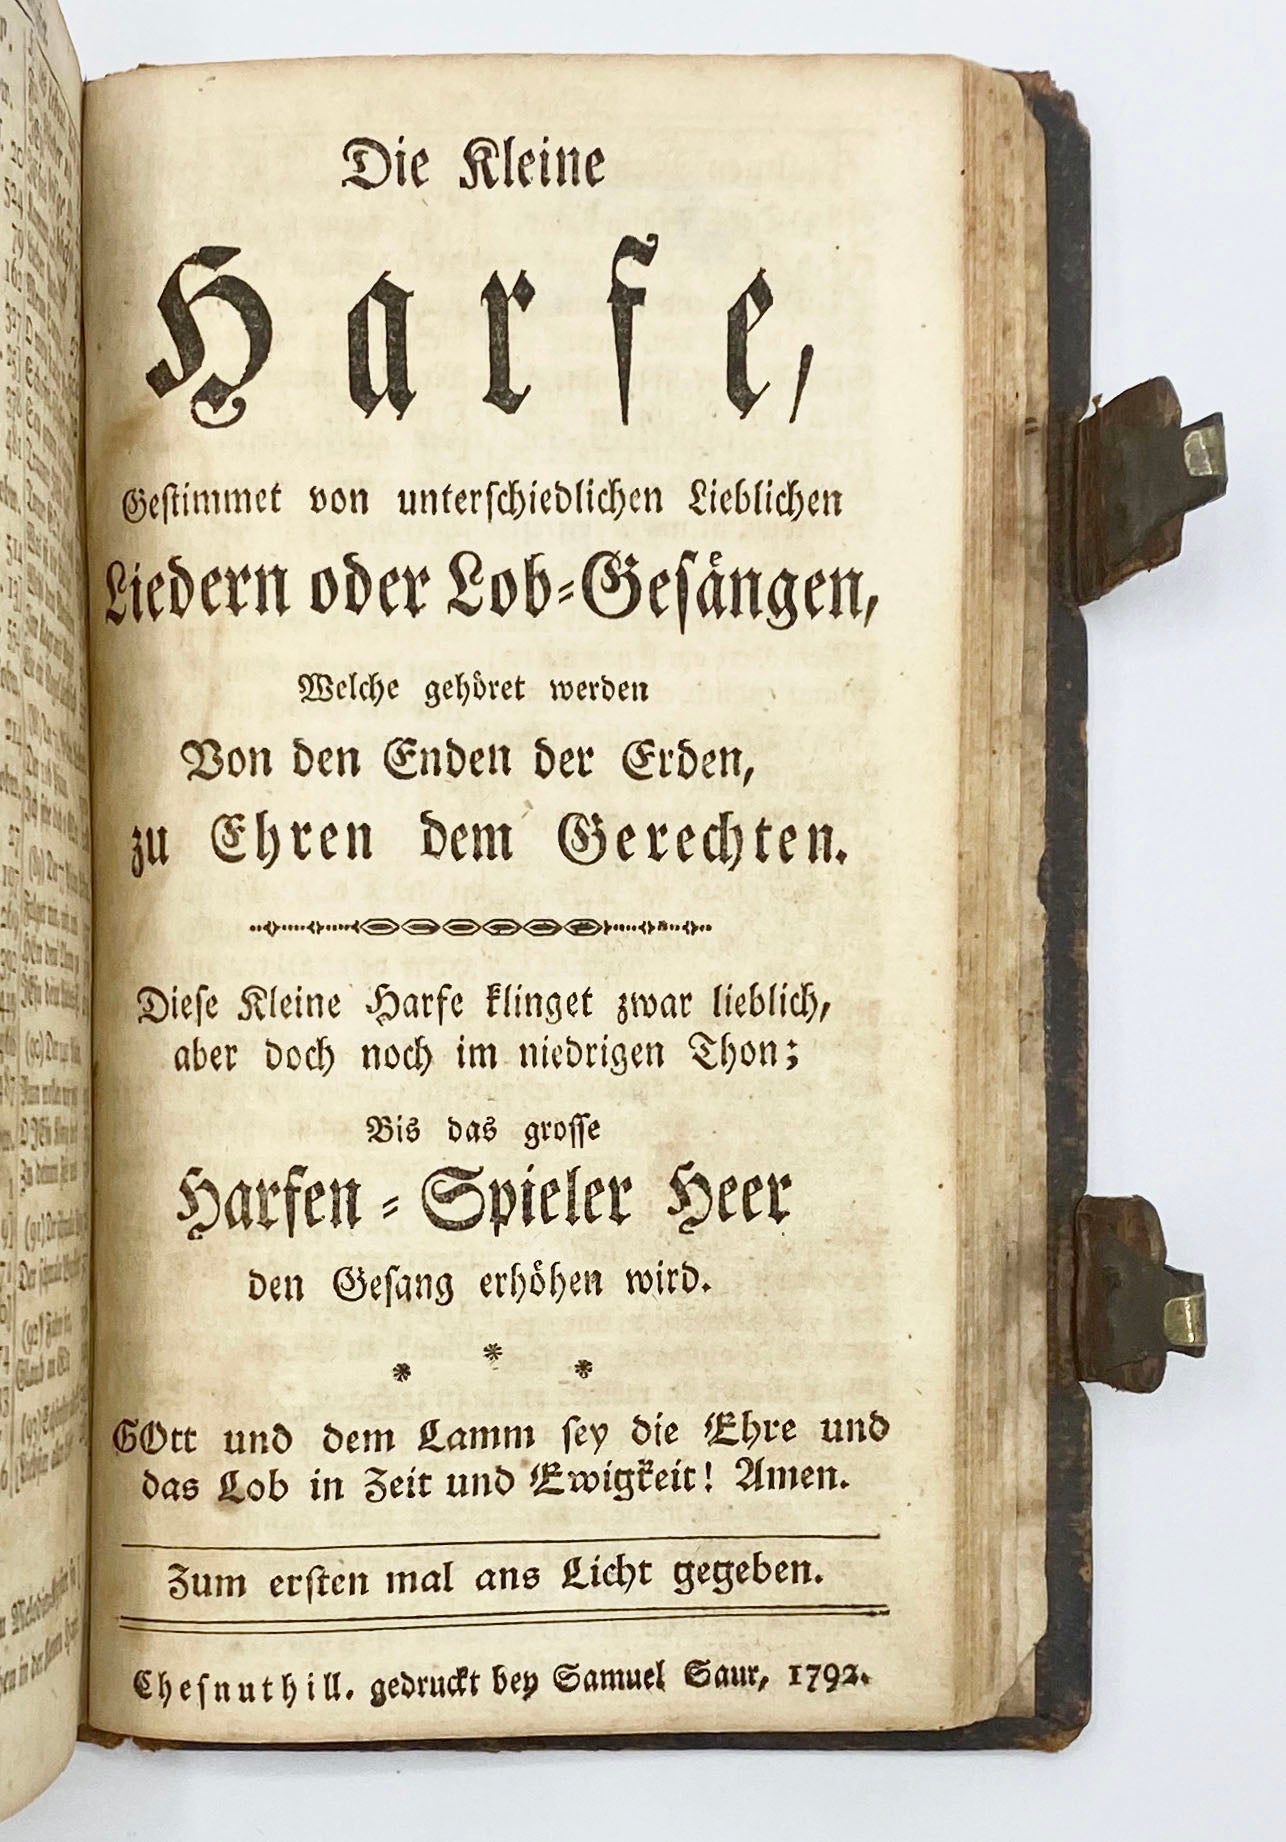 Die Kleine
Harfe,
Gestimmet von unterschiedlichen Lieblichen
Liedern oder Lob-Gesängen,
Welche gehöret werden
Von den Enden der Erden,
zu Ehren dem Gerechten.
Diese Kleine Harfe klinget zwar lieblich,
aber doch noch im niedrigen Thon;
Bis das grosse
Harfen-Spieler Heer
den Gesang erhöhen wird.
* * *
GOtt und dem Lamm sey die Ehre und
das Lob in Zeit und Ewigkeit! Amen.
Zum ersten mal ans Licht gegeben.
Chesnuthill. gedruckt bey Samuel Saur, 1792.